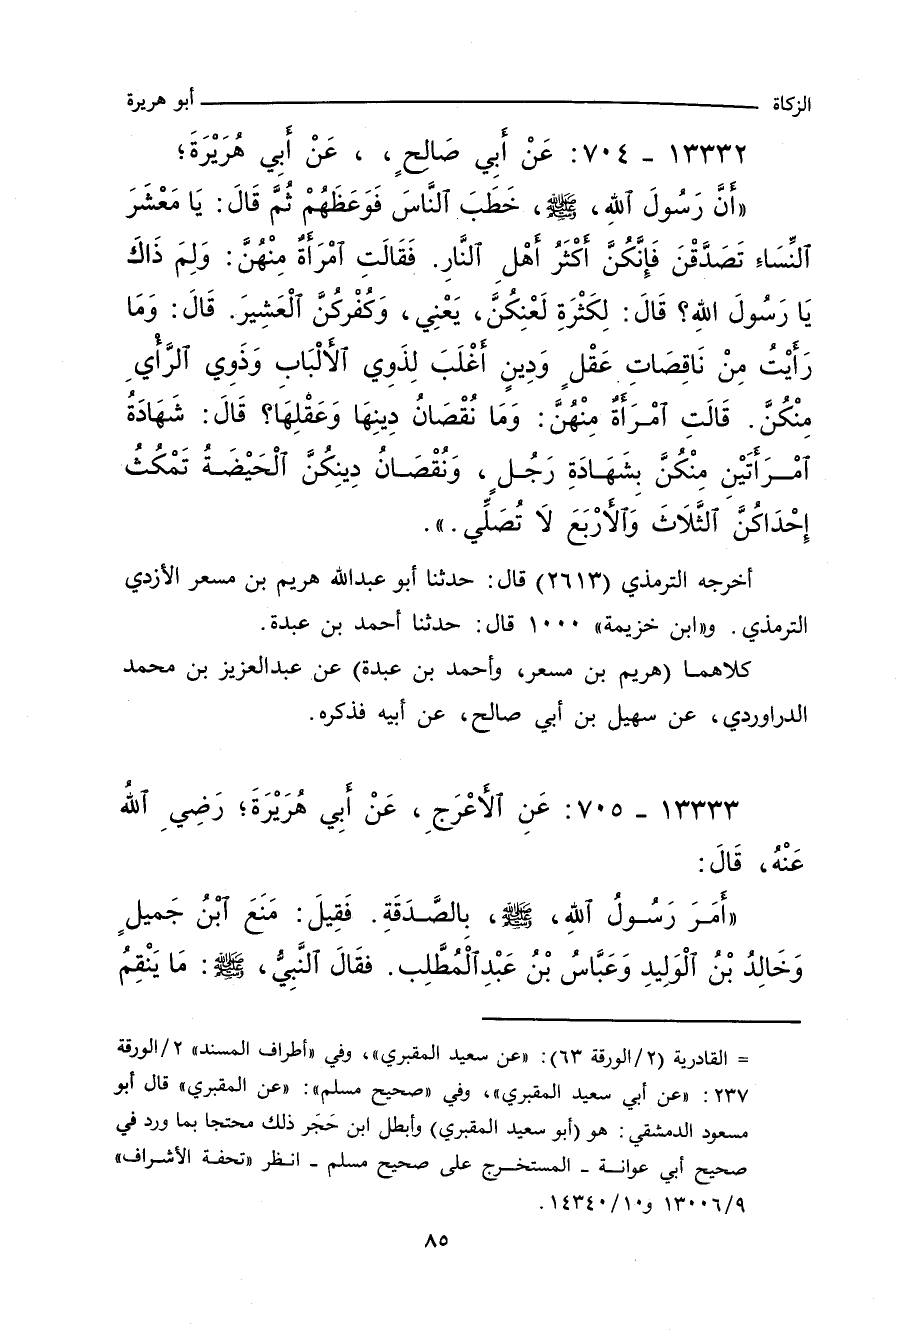 الزكاة أبو هريرة
١٣٣٣٢ - ٧٠٤: عَنْ أَبِي صَالِحٍ، ، عَنْ أَبِي هُرَيْرَةَ؛
«أَنَّ رَسُولَ ٱللهِ، ﷺ، خَطَبَ ٱلنَّاسَ فَوَعَظَهُمْ ثُمَّ قَالَ: يَا مَعْشَرَ
ٱلنِّسَاءِ تَصَدَّقْنَ فَإِنَّكُنَّ أَكْثَرُ أَهْلِ ٱلنَّارِ. فَقَالَتِ ٱمْرَأَةٌ مِنْهُنَّ: وَلِمَ ذَاكَ
يَا رَسُولَ اللهِ؟ قَالَ: لِكَثْرَةِ لَعْنِكُنَّ، يَعْنِي، وَكُفْرِكُنَّ ٱلْعَشِيرَ. قَالَ: وَمَا
رَأَيْتُ مِنْ نَاقِصَاتِ عَقْلٍ وَدِينٍ أَغْلَبَ لِذَوِي ٱلْأَلْبَابِ وَذَوِي ٱلرَّأْيِ
مِنْكُنَّ. قَالَتِ ٱمْرَأَةٌ مِنْهُنَّ: وَمَا نُقْصَانُ دِينِهَا وَعَقْلِهَا؟ قَالَ: شَهَادَةُ
ٱمْرَأَتَيْنِ مِنْكُنَّ بِشَهَادَةِ رَجُلٍ، وَنُقْصَانُ دِينِكُنَّ ٱلْحَيْضَةُ تَمْكُثُ
إِحْدَاكُنَّ ٱلثَّلَاثَ وَٱلْأَرْبَعَ لَا تُصَلِّي.».
أخرجه الترمذي (٢٦١٣) قال: حدثنا أبو عبدالله هريم بن مسعر الأزدي
الترمذي. و«ابن خزيمة» ١٠٠٠ قال: حدثنا أحمد بن عبدة.
كلاهما (هريم بن مسعر، وأحمد بن عبدة) عن عبدالعزيز بن محمد
الدراوردي، عن سهيل بن أبي صالح، عن أبيه فذكره.
١٣٣٣٣ - ٧٠٥: عَنِ ٱلْأَعْرَجِ، عَنْ أَبِي هُرَيْرَةَ؛ رَضِيَ ٱللهُ
عَنْهُ، قَالَ:
«أَمَرَ رَسُولُ ٱللهِ، ﷺ، بِالصَّدَقَةِ. فَقِيلَ: مَنَعَ ٱبْنُ جَمِيلٍ
وَخَالِدُ بْنُ ٱلْوَلِيدِ وَعَبَّاسُ بْنُ عَبْدِٱلْمُطَّلِبِ. فَقَالَ ٱلنَّبِيُّ، ﷺ: مَا يَنْقِمُ
= القادرية (٢/الورقة ٦٣): «عن سعيد المقبري»، وفي «أطراف المسند» ٢/الورقة
٢٣٧: «عن أبي سعيد المقبري»، وفي «صحيح مسلم»: «عن المقبري» قال أبو
مسعود الدمشقي: هو (أبو سعيد المقبري) وأبطل ابن حَجَر ذلك محتجا بما ورد في
صحيح أبي عوانة - المستخرج على صحيح مسلم - انظر «تحفة الأشراف»
١٣٠٠٦/٩ و١٤٣٤٠/١٠.
٨٥